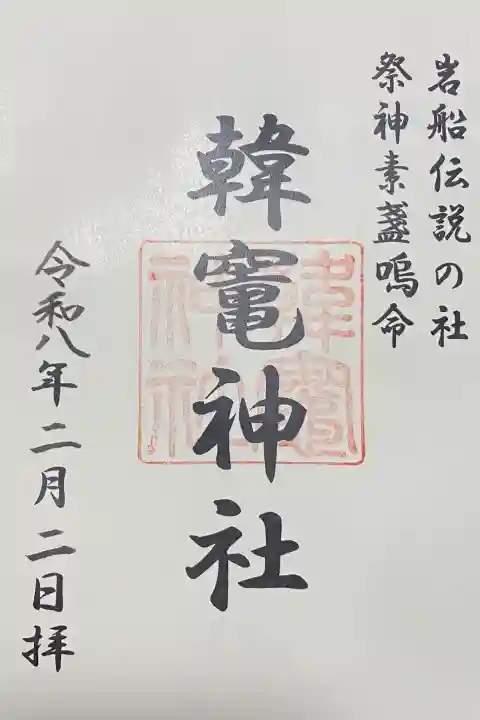 岩船伝説の社
祭神素盞嗚命
韓竈神社
韓竈神社
令和八年二月二日拝